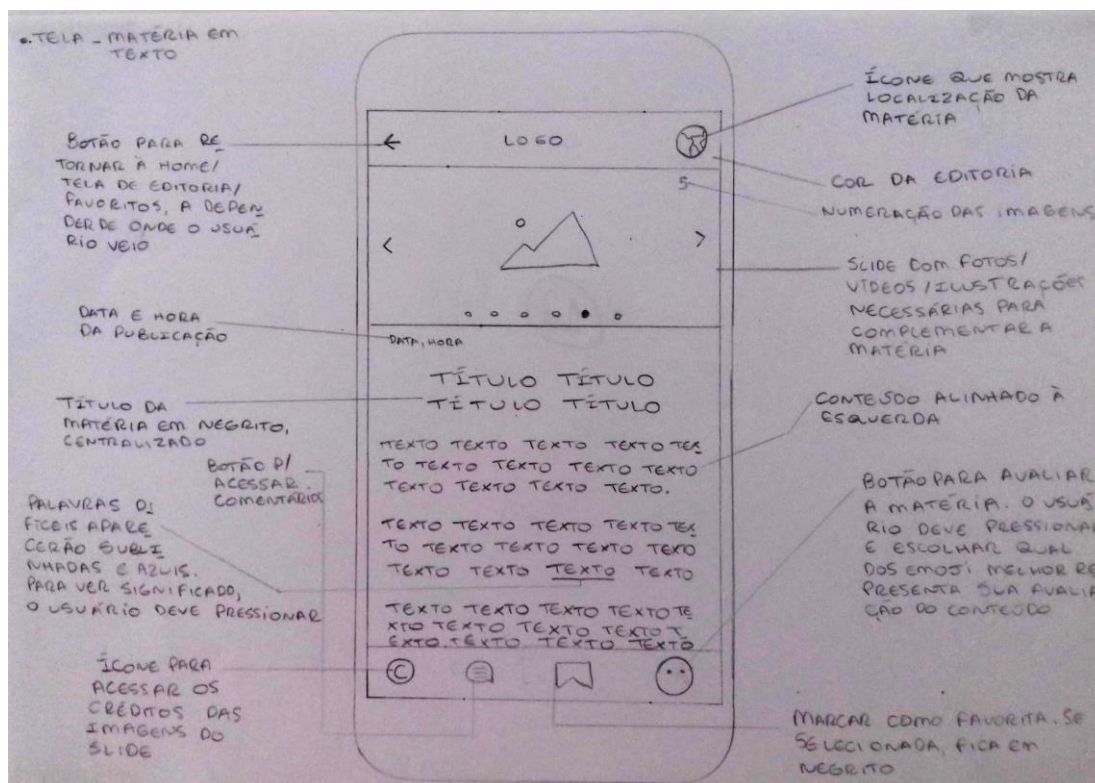 .TELA _ MATÉRIA EM
TEXTO
BOTÃO PARA RE
TORNAR À HOME/
TELA DE EDITORIA/
FAVORITOS, A DEPEN
DER DE ONDE O USUÁ
RIO VEIO
DATA E HORA
DA PUBLICAÇÃO
TÍTULO DA
MATÉRIA EM NEGRITO,
CENTRALIZADO
BOTÃO P/
ACESSAR
COMENTÁRIOS
PALAVRAS DI
FÍCEIS APARE
CERÃO SUBLI
NHADAS E AZUIS.
PARA VER SIGNIFICADO,
O USUÁRIO DEVE PRESSIONAR
ÍCONE PARA
ACESSAR OS
CRÉDITOS DAS
IMAGENS DO
SLIDE
LOGO
5
DATA, HORA
TÍTULO TÍTULO
TÍTULO TÍTULO
TEXTO TEXTO TEXTO TEXTO TEX
TO TEXTO TEXTO TEXTO TEXTO
TEXTO TEXTO TEXTO TEXTO.
TEXTO TEXTO TEXTO TEXTO TEX
TO TEXTO TEXTO TEXTO TEXTO
TEXTO TEXTO TEXTO TEXTO
TEXTO TEXTO TEXTO TEXTO TE
XTO TEXTO TEXTO TEXTO T
EXTO. TEXTO TEXTO TEXTO
C
ÍCONE QUE MOSTRA
LOCALIZAÇÃO DA
MATÉRIA
COR DA EDITORIA
NUMERAÇÃO DAS IMAGENS
SLIDE COM FOTOS/
VÍDEOS/ILUSTRAÇÕES
NECESSÁRIAS PARA
COMPLEMENTAR A
MATÉRIA
CONTEÚDO ALINHADO À
ESQUERDA
BOTÃO PARA AVALIAR
A MATÉRIA. O USUÁ
RIO DEVE PRESSIONAR
E ESCOLHAR QUAL
DOS EMOJI MELHOR RE
PRESENTA SUA AVALIA
ÇÃO DO CONTEÚDO
MARCAR COMO FAVORITA. SE
SELECIONADA, FICA EM
NEGRITO